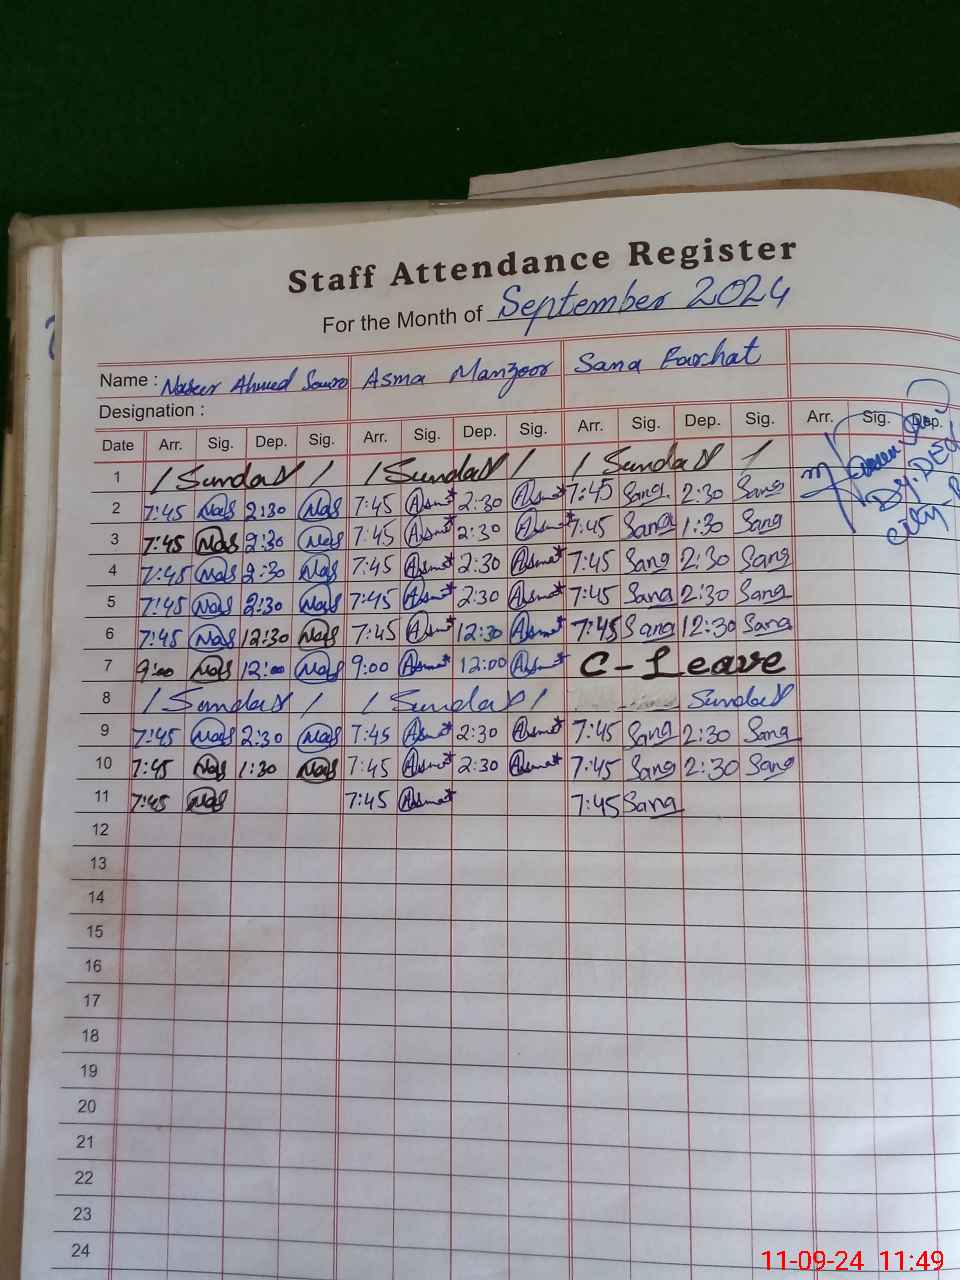 Staff Attendance Register
For the Month of September 2024
Name : Naseer Ahmed Asma Manzoor Sana Farhat
Designation :
Date Arr. Sig. Dep. Sig. Arr. Sig. Dep. Sig. Arr. Sig. Dep. Sig. Arr. Sig. Dep.
1 / Sunday / / Sunday / / Sunday /
2 7:45 Nas 2:30 Nas 7:45 Asma 2:30 Asma 7:45 Sana 2:30 Sana
3 7:45 Nas 2:30 Nas 7:45 Asma 2:30 Asma 7:45 Sana 1:30 Sana
4 7:45 Nas 2:30 Nas 7:45 Asma 2:30 Asma 7:45 Sana 2:30 Sana
5 7:45 Nas 2:30 Nas 7:45 Asma 2:30 Asma 7:45 Sana 2:30 Sana
6 7:45 Nas 12:30 Nas 7:45 Asma 12:30 Asma 7:45 Sana 12:30 Sana
7 9:00 Nas 12:00 Nas 9:00 Asma 12:00 Asma C-Leave
8 / Sunday / / Sunday / Sunday
9 7:45 Nas 2:30 Nas 7:45 Asma 2:30 Asma 7:45 Sana 2:30 Sana
10 7:45 Nas 1:30 Nas 7:45 Asma 2:30 Asma 7:45 Sana 2:30 Sana
11 7:45 Nas 7:45 Asma 7:45 Sana
12
13
14
15
16
17
18
19
20
21
22
23
24
Dy. DEO
city
11-09-24 11:49